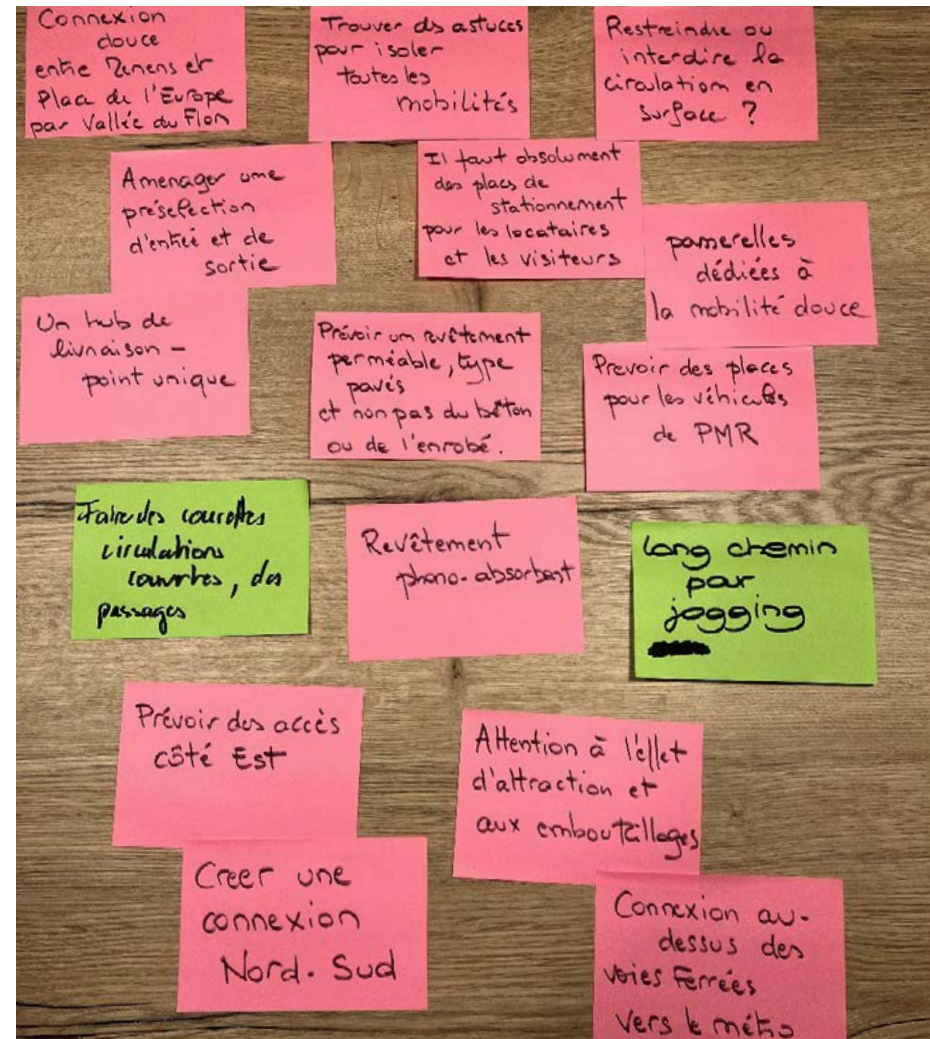 Connexion
douce
entre Renens et
Place de l'Europe
par Vallée du Flon
Trouver ds astuces
pour isoler
toutes les
mobilités
Restreindre ou
interdire la
circulation en
surface ?
Amenager une
présélection
d'entrée et de
sortie
Il faut absolument
des places de
stationnement
pour les locataires
et les visiteurs
passerelles
dédiées à
la mobilité douce
Un hub de
livraison –
point unique
Prévoir un revêtement
perméable, type
pavés
et non pas du béton
ou de l'enrobé.
Prevoir des places
pour les véhicules
de PMR
Faire des
circulations
couvertes, des
passages
Revêtement
phono-absorbant
long chemin
par
jogging
Prévoir des accès
côté Est
Attention à l'effet
d'attraction et
aux embouteillages
Creer une
connexion
Nord-Sud
Connexion au-
dessus des
voies Ferrées
vers le métro